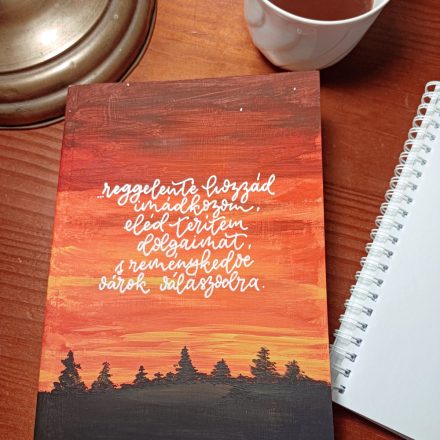 ...reggelente hozzád
imádkozom,
eléd terítem
dolgaimat,
s reménykedve
várok válaszodra.